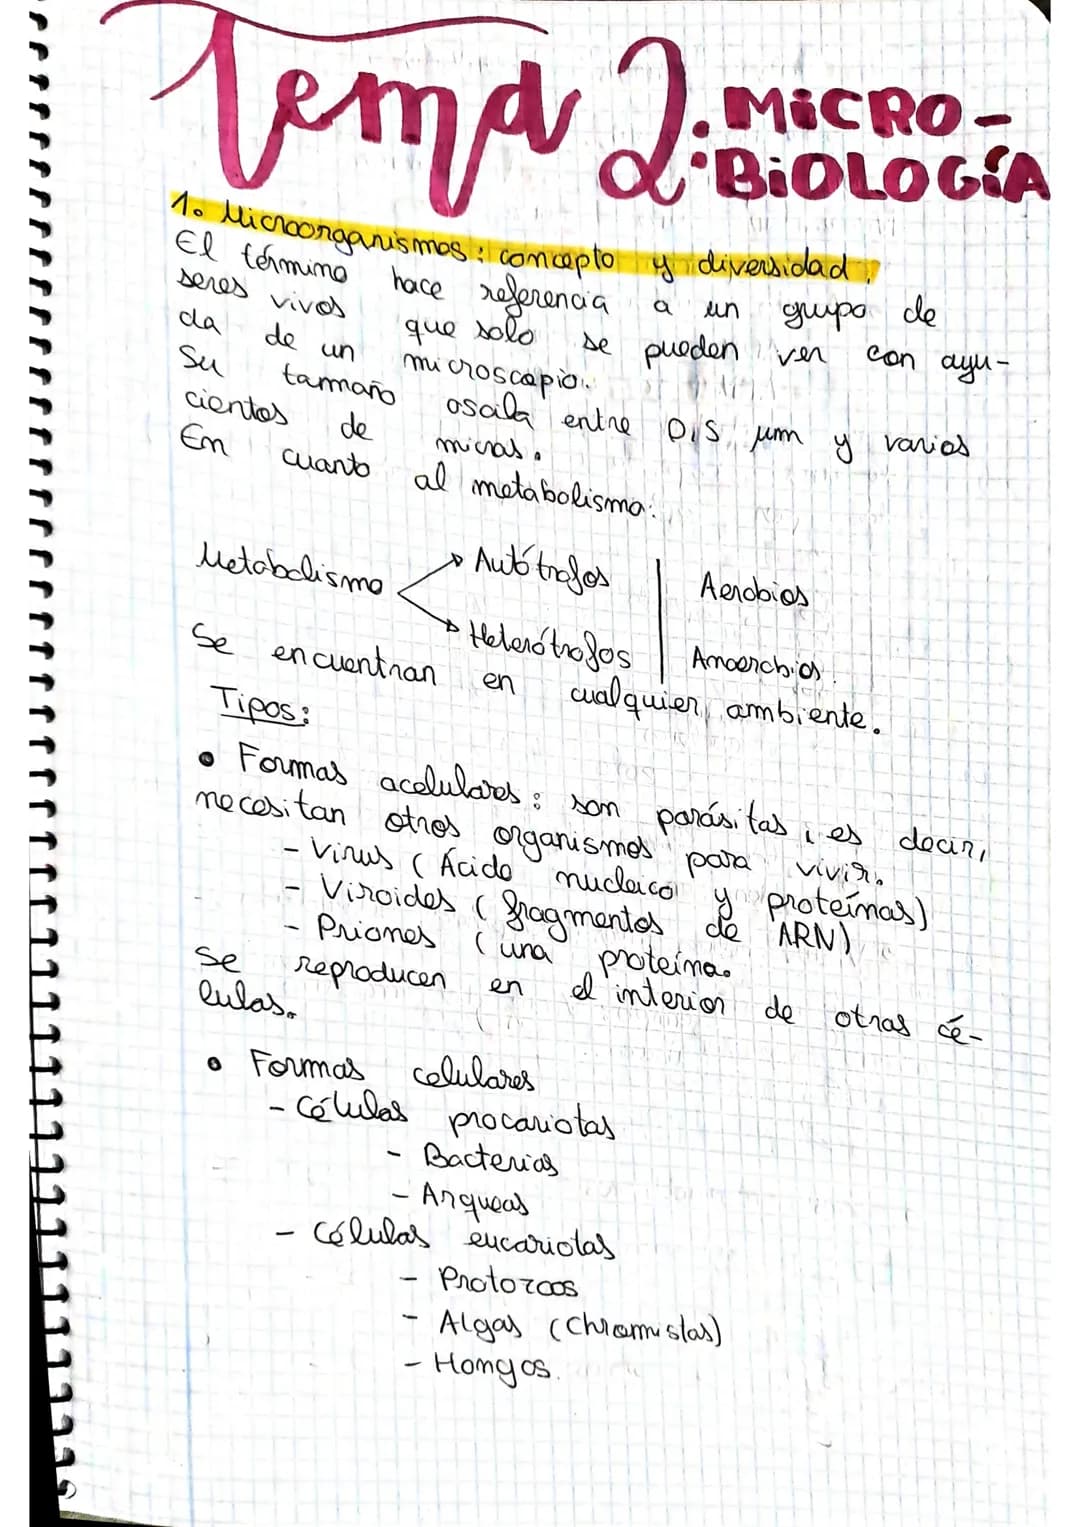 Tema 2: MiCRO-
BiOLOGÍA
1. Microorganismos: concepto y diversidad.
El término hace referencia a un grupo de
seres vivos que solo se pueden ver con ayu-
da de un microscopio.
Su tamaño oscila entre 0,5 µm y varios
cientos de micras.
En cuanto al metabolismo:
Metabolismo
Autótrofos
Heterótrofos
Aerobios
Anaerobios.
Se encuentran en cualquier ambiente.
Tipos:
• Formas acelulares: son parásitas, es decir,
necesitan otros organismos para vivir.
- Virus (Ácido nucleico y proteínas)
- Viroides (fragmentos de ARN)
- Priones (una proteína.
Se reproducen en el interior de otras cé-
lulas.
• Formas celulares
- Células procariotas
- Bacterias
- Arqueas
- Células eucariotas
- Protozoos
- Algas (Chromistas)
- Hongos.